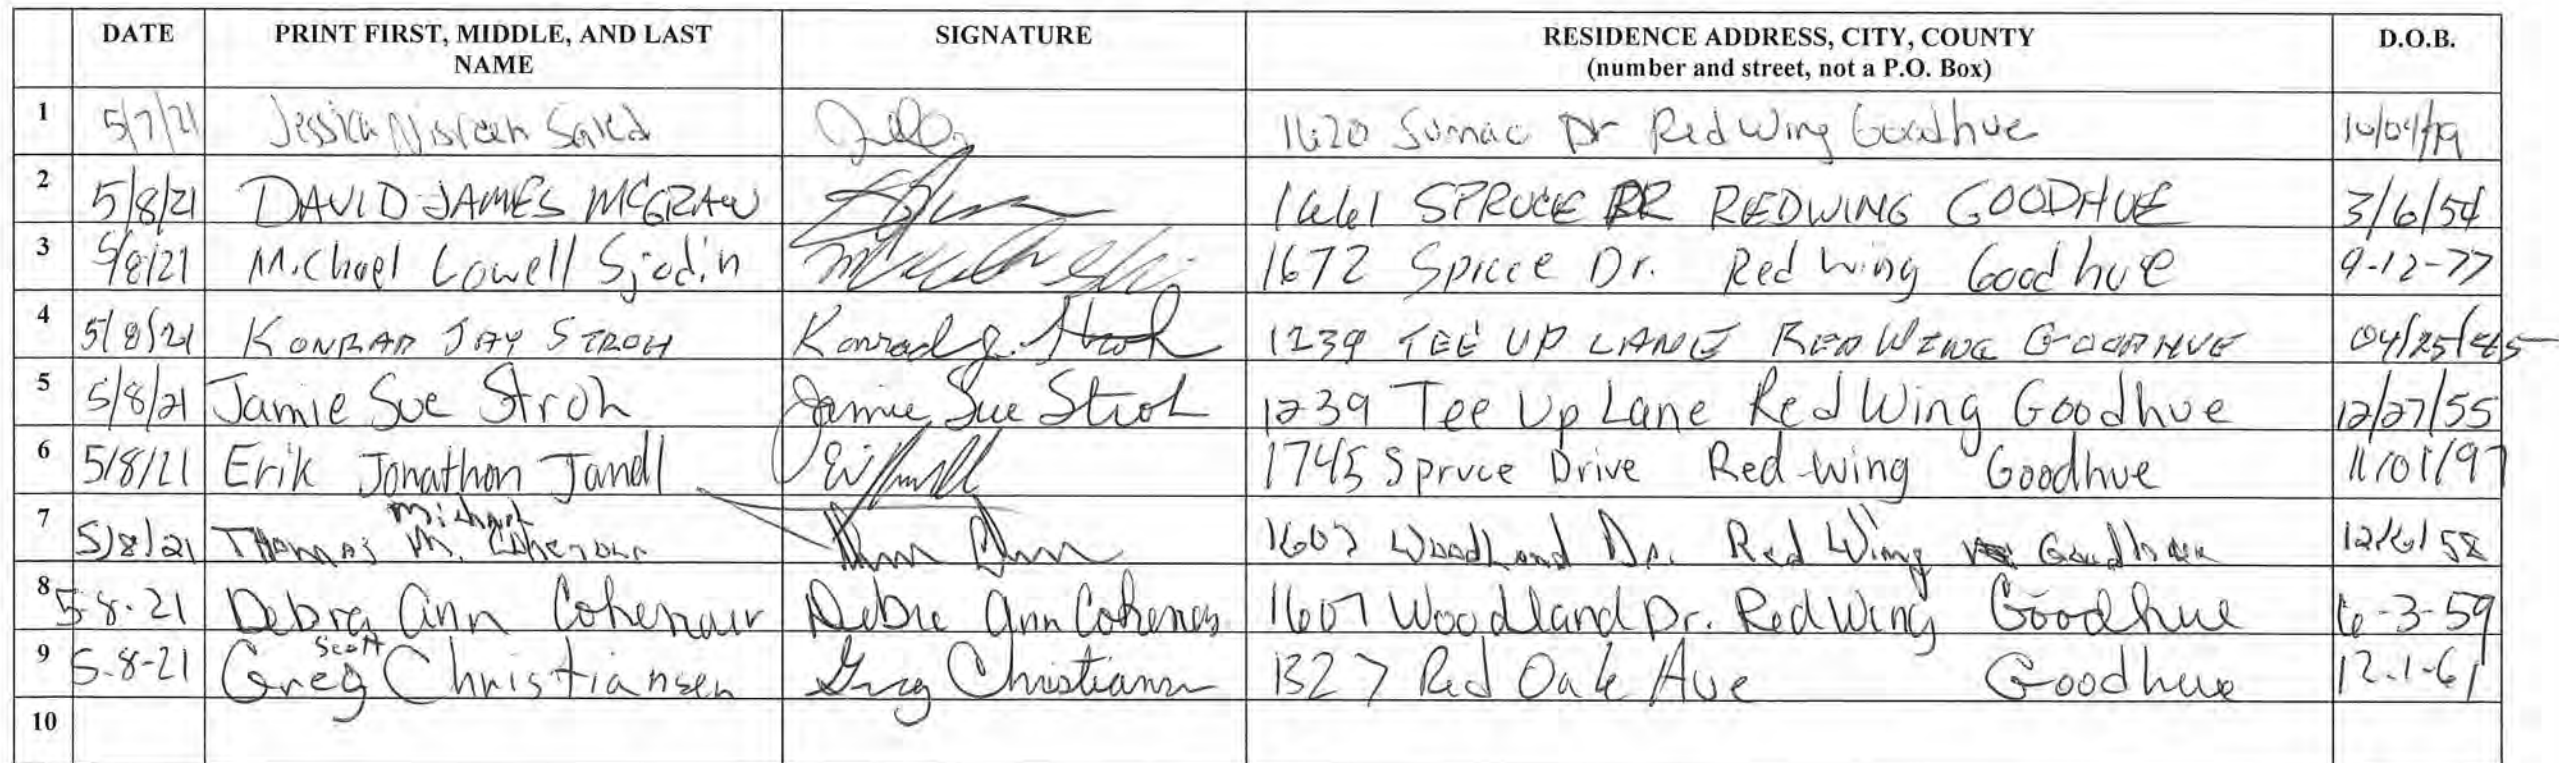 DATE PRINT FIRST, MIDDLE, AND LAST NAME SIGNATURE RESIDENCE ADDRESS, CITY, COUNTY (number and street, not a P.O. Box) D.O.B.
1 5/7/21 Jessica Nisreen Saied 1620 Sumac Dr Red Wing Goodhue
2 5/8/21 DAVID JAMES MCGRAW 1661 SPRUCE DR REDWING GOODHUE 3/6/54
3 5/8/21 Michael Lowell Sjodin 1672 Spruce Dr. Red Wing Goodhue 9-12-77
4 5/8/21 KONRAD JAY STROH Konrad J. Stroh 1239 TEE UP LANE RED WING GOODHUE 04/25/45
5 5/8/21 Jamie Sue Stroh Jamie Sue Stroh 1239 Tee Up Lane Red Wing Goodhue 12/27/55
6 5/8/21 Erik Jonathon Jandl 1745 Spruce Drive Red Wing Goodhue 11/01/97
7 5/8/21 Thomas Michael M. Woodland Dr. Red Wing Goodhue 12/6/58
8 5-8-21 Debra Ann Cohenour 1607 Woodland Dr. Red Wing Goodhue 6-3-59
9 5-8-21 Greg Scott Christiansen Greg Christiansen 1327 Red Oak Ave Goodhue 12-1-61
10